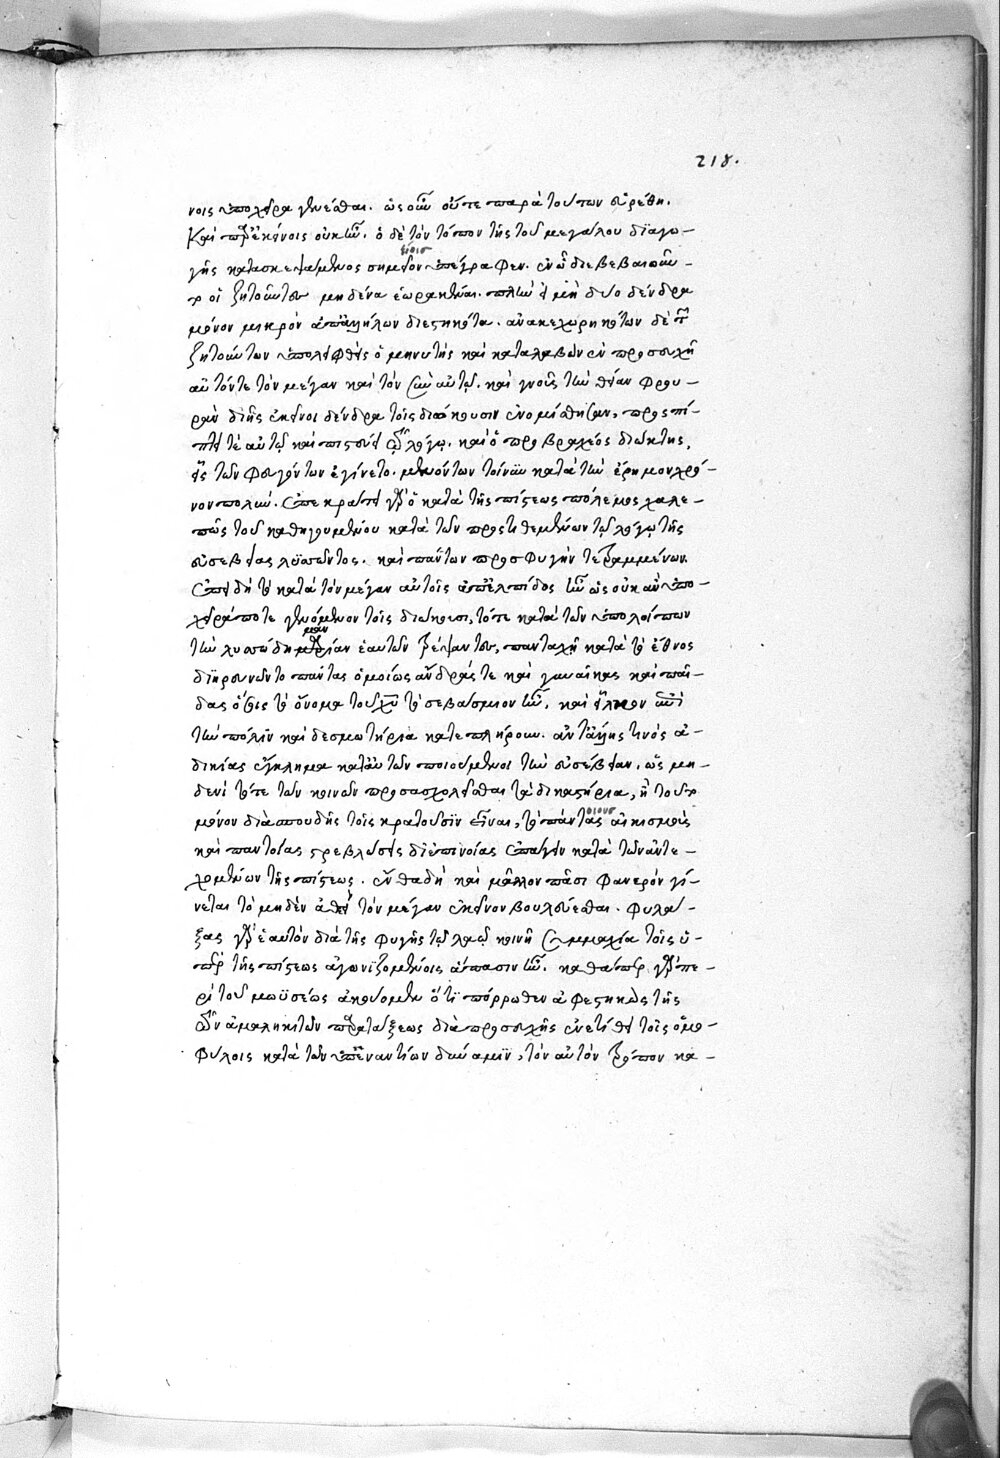 218.
νοις ὑπόλειμμα γενέσθαι. ὡς οὖν οὔτε παρὰ τούτων εὑρέθη.
καὶ παρ' ἐκείνοις οὐκ ἦν. ὁ δὲ τὸν τόπον τῆς τοῦ μεγάλου διαγω-
γῆς κατασκεψάμενος σημεῖον ὑπέγραφεν. ἐν ᾧ διεβεβαιοῦν-
το οἱ ζητοῦντες μηδένα ἑωρακέναι. πλὴν εἰ μὴ δύο δένδρα
μόνον μικρὸν ἀπ' ἀλλήλων διεστηκότα. ἀνακεχωρηκότων δὲ τῶν
ζητούντων ὑπολειφθεὶς ὁ μηνυτὴς καὶ καταλαβὼν ἐν προσευχῇ
αὐτόν τε τὸν μέγαν καὶ τὸν σὺν αὐτῷ. καὶ γνοὺς τὴν θείαν φρου-
ρὰν δι' ἧς ἐκεῖνοι δένδρα τοῖς διώκουσιν ἐνομίσθησαν, προσπί-
πτει τε αὐτῷ καὶ πιστεύει τῷ λόγῳ. καὶ ὁ πρὸ βραχέος διώκτης,
εἷς τῶν φευγόντων ἐγίνετο. μενόντων τοίνυν κατὰ τὴν ἔρημον χρό-
νον πολύν. ἐπεκράτει γὰρ ὁ κατὰ τῆς πίστεως πόλεμος χαλε-
πῶς τοῦ καθηγουμένου κατὰ τῶν προστιθεμένων τῷ λόγῳ τῆς
εὐσεβείας λυττῶντος. καὶ πάντων πρὸς φυγὴν τετραμμένων.
ἐπειδὴ τὸ κατὰ τὸν μέγαν αὐτοῖς ἀπ' ἐλπίδος ἦν ὡς οὐκ ἂν ὑπο-
χείριόν ποτε γενόμενον τοῖς διώκουσι, τότε κατὰ τῶν ὑπολοίπων
τὴν λυσσώδη μανίαν ἑαυτῶν τρέψαντες, πανταχῆ κατὰ τὸ ἔθνος
διηρευνῶντο πάντας ὁμοίως ἄνδράς τε καὶ γυναῖκας καὶ παῖ-
δας ὅσοις τὸ ὄνομα τοῦ χυ τὸ σεβάσμιον ἦν, καὶ εἷλκον ἀνὰ
τὴν πόλιν καὶ δεσμωτήρια κατεπλήρουν. ἀντ' ἄλλης τινὸς ἀ-
δικίας ἔγκλημα κατ' αὐτῶν ποιούμενοι τὴν εὐσέβειαν. ὡς μη-
δενὶ τότε τῶν κοινῶν προσασχολεῖσθαι τὰ δικαστήρια, ἢ τοῦτο
μόνον διὰ σπουδῆς τοῖς κρατοῦσιν εἶναι, τὸ πάντας αἰκισμοὺς
καὶ παντοίας στρεβλώσεις δι' ἐπινοίας ἐπάγειν κατὰ τῶν ἀντε-
χομένων τῆς πίστεως. ἔνθα δὴ καὶ μᾶλλον πᾶσι φανερὸν γί-
νεται τὸ μηδὲν ἀθεεὶ τὸν μέγαν ἐκεῖνον βουλεύεσθαι. φυλά-
ξας γὰρ ἑαυτὸν διὰ τῆς φυγῆς τῷ λαῷ κοινὴ συμμαχία τοῖς ὑ-
πὲρ τῆς πίστεως ἀγωνιζομένοις ἅπασιν ἦν. καθάπερ γὰρ πε-
ρὶ τοῦ μωϋσέως ἀκούομεν ὅτι πόρρωθεν ἀφεστηκὼς τῆς
τῶν ἀμαληκιτῶν παρατάξεως διὰ προσευχῆς ἐνετίθει τοῖς ὁμο-
φύλοις κατὰ τῶν ὑπεναντίων δύναμιν, τὸν αὐτὸν τρόπον κα-